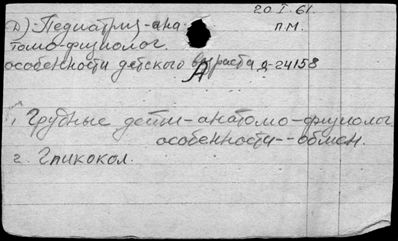 20.I.61.
Д)-Педиатрия-ана
п.м.
томо-физиолог.
особенности детского возраста Д-24158
А
1. Грудные дети-анатомо-физиолог
особенности--обмен.
2. Гликокол.